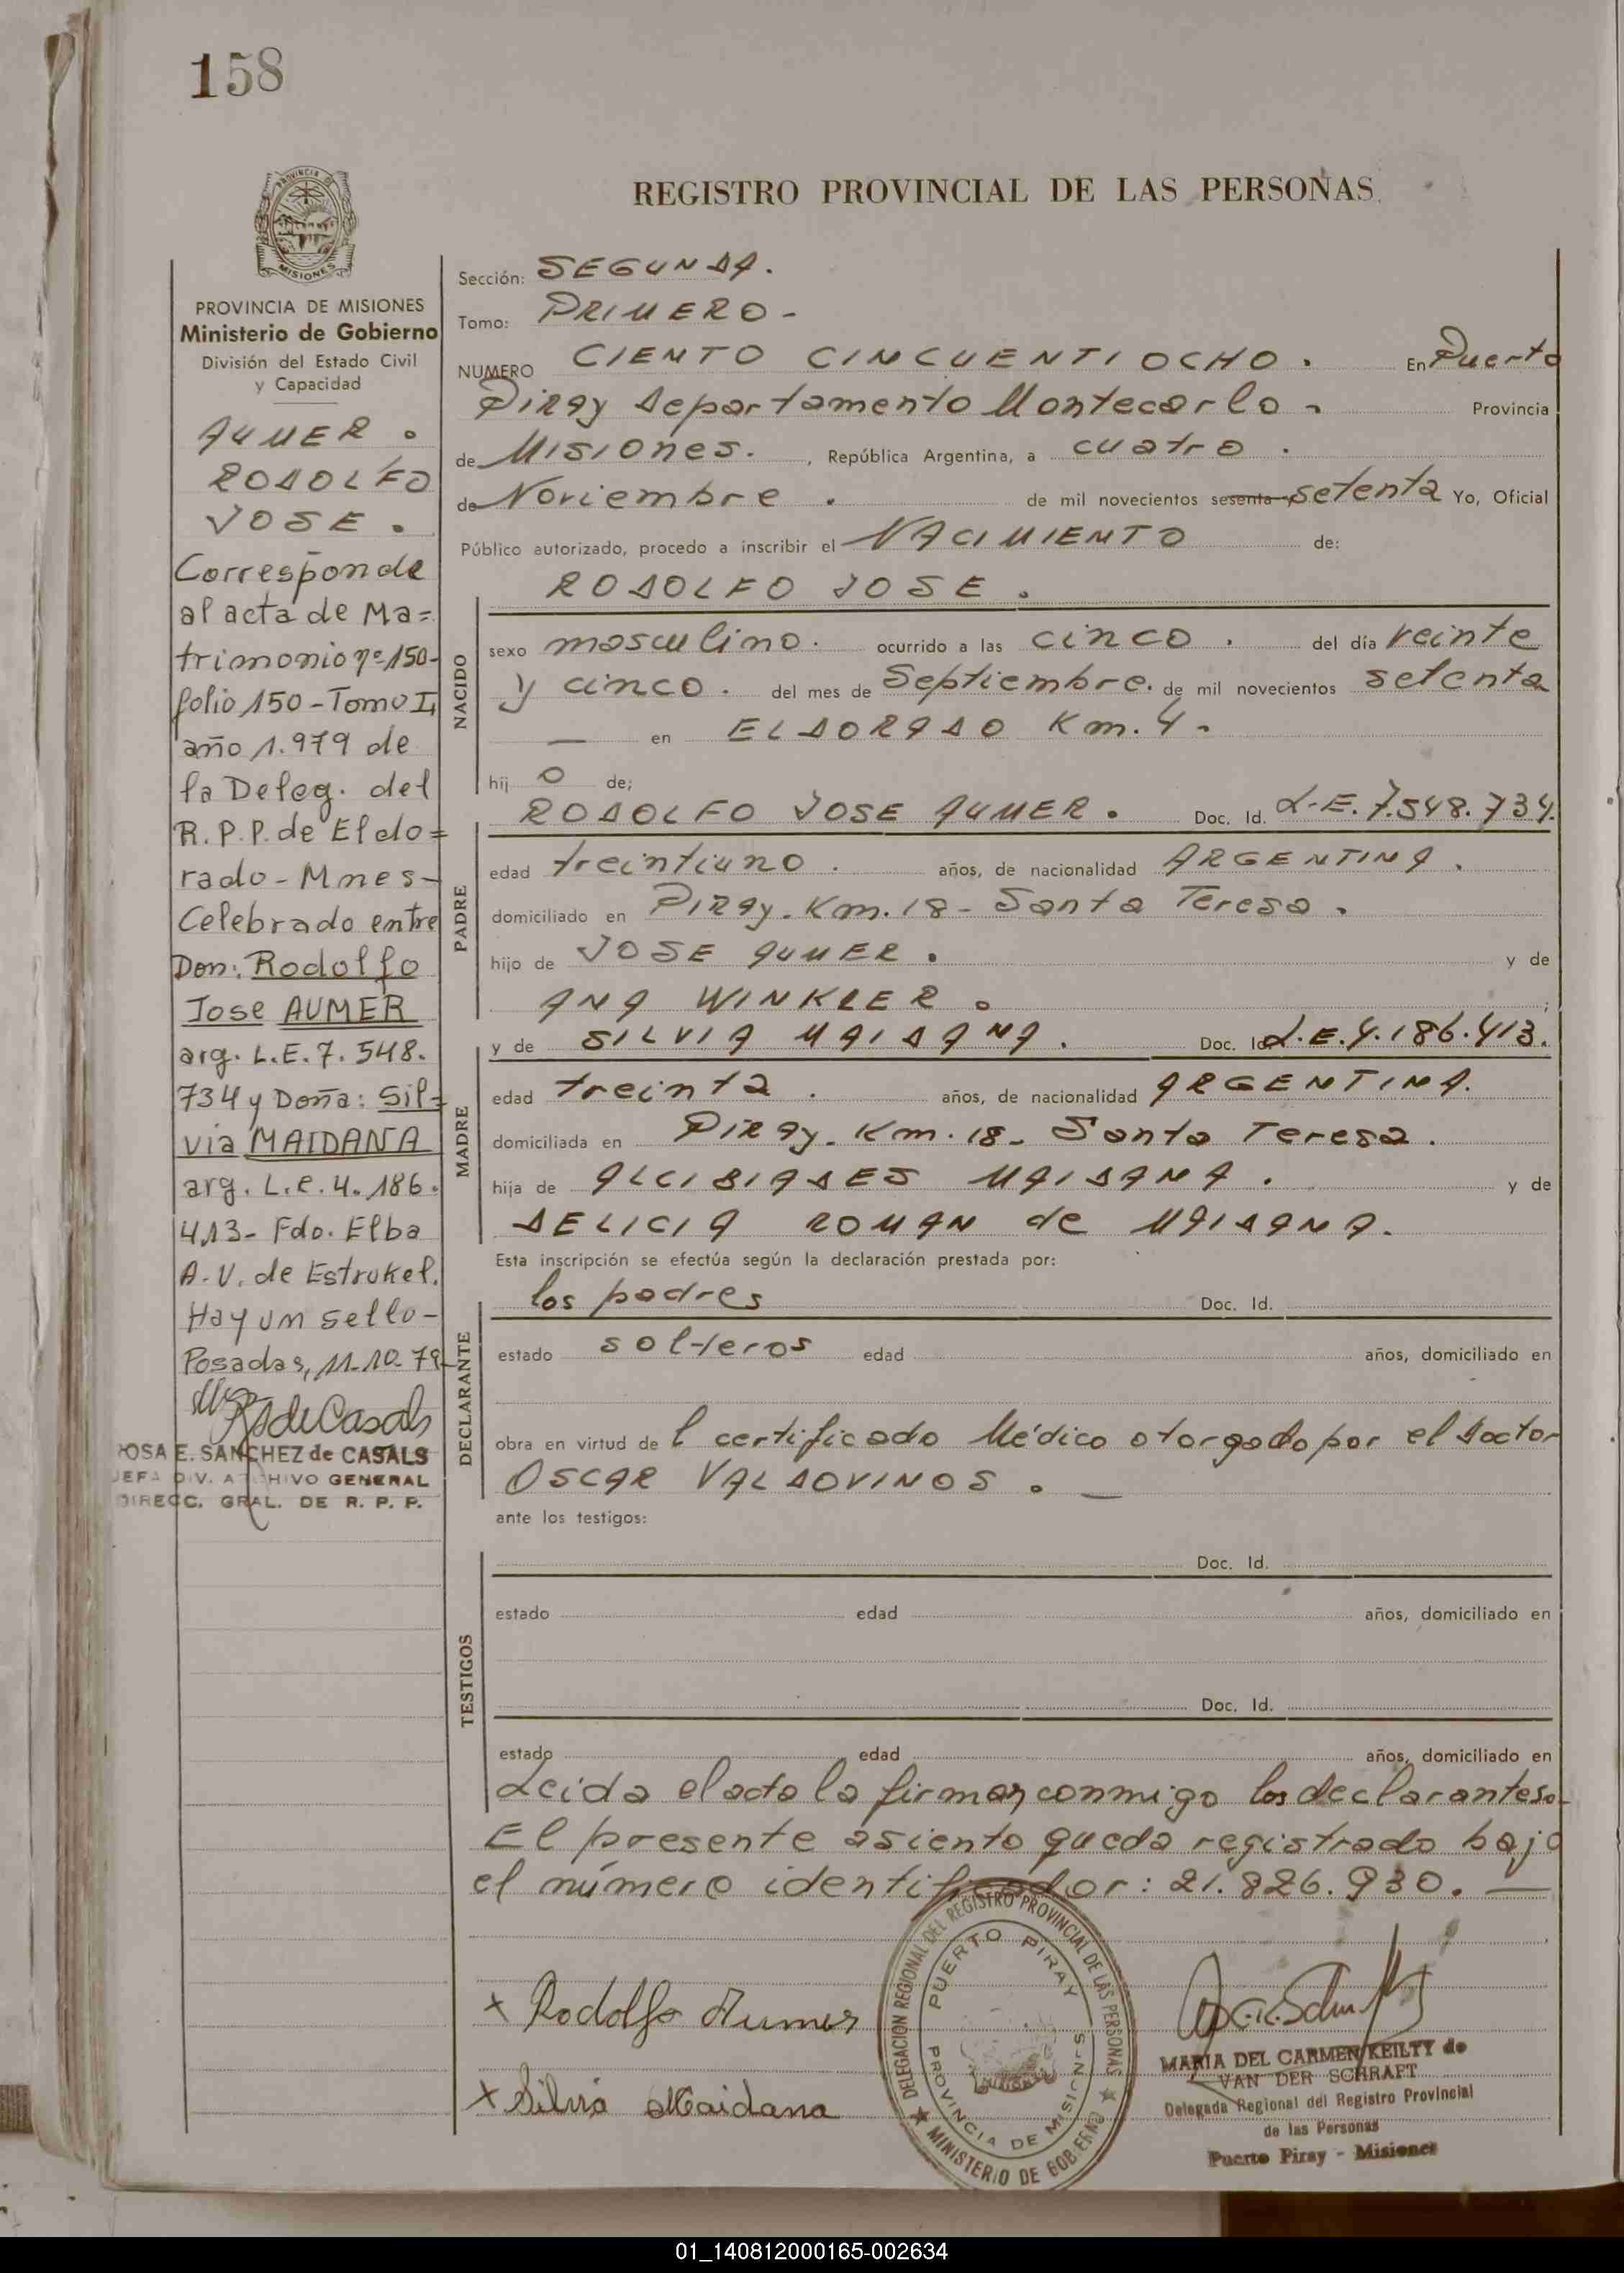 158
REGISTRO PROVINCIAL DE LAS PERSONAS
MISIONES
PROVINCIA DE MISIONES
Ministerio de Gobierno
División del Estado Civil
y Capacidad
AUMER.
RODOLFO
JOSE.
Corresponde
al acta de Ma=
trimonio nº 150-
folio 150 - Tomo I,
año 1.979 de
la Deleg. del
R.P.P. de Eldo=
rado - Mnes-
Celebrado entre
Don: Rodolfo
Jose AUMER
arg. L.E. 7.548.
734 y Doña: Sil=
via MAIDANA
arg. L.E. 4.186.
413- Fdo. Elba
A.V. de Estrukel.
Hay un sello-
Posadas, 11-10-79-
ROSA E. SANCHEZ de CASALS
JEFA DIV. ARCHIVO GENERAL
DIRECC. GRAL. DE R. P. P.
Sección: SEGUNDA.
Tomo: PRIMERO-
NUMERO CIENTO CINCUENTIOCHO. En Puerto
Piray Departamento Montecarlo. Provincia
de Misiones. , República Argentina, a cuatro.
de Noviembre. de mil novecientos sesenta y setenta Yo, Oficial
Público autorizado, procedo a inscribir el NACIMIENTO de:
RODOLFO JOSE.
NACIDO
sexo masculino. ocurrido a las cinco. del día veinte
y cinco. del mes de Septiembre. de mil novecientos setenta
— en ELDORADO Km. 4.
hij o de;
RODOLFO JOSE AUMER. Doc. Id. L.E. 7.548.734.
PADRE
edad treintiuno. años, de nacionalidad ARGENTINA.
domiciliado en Piray. Km. 18- Santa Teresa.
hijo de JOSE AUMER. y de
ANA WINKLER.
y de SILVIA MAIDANA. Doc. Id. L.E. 4.186.413.
MADRE
edad treinta. años, de nacionalidad ARGENTINA.
domiciliada en Piray. Km. 18- Santa Teresa.
hija de ALCIBIADES MAIDANA. y de
DELICIA ROMAN de MAIDANA.
Esta inscripción se efectúa según la declaración prestada por:
los padres Doc. Id.
DECLARANTE
estado solteros edad años, domiciliado en
obra en virtud de l certificado Médico otorgado por el Doctor
OSCAR VALDOVINOS. —
ante los testigos:
Doc. Id.
TESTIGOS
estado edad años, domiciliado en
Doc. Id.
estado edad años, domiciliado en
Leida el acta la firman conmigo los declarantes.-
El presente asiento queda registrado bajo
el número identificador: 21.826.930. —
x Rodolfo Aumer
x Silvia Maidana
DELEGACION REGIONAL DEL REGISTRO PROVINCIAL DE LAS PERSONAS
MINISTERIO DE GOBIERNO
PUERTO PIRAY
PROVINCIA DE MISIONES
MARIA DEL CARMEN KEILTY de
VAN DER SCHRAFT
Delegada Regional del Registro Provincial
de las Personas
Puerto Piray - Misiones
01_140812000165-002634